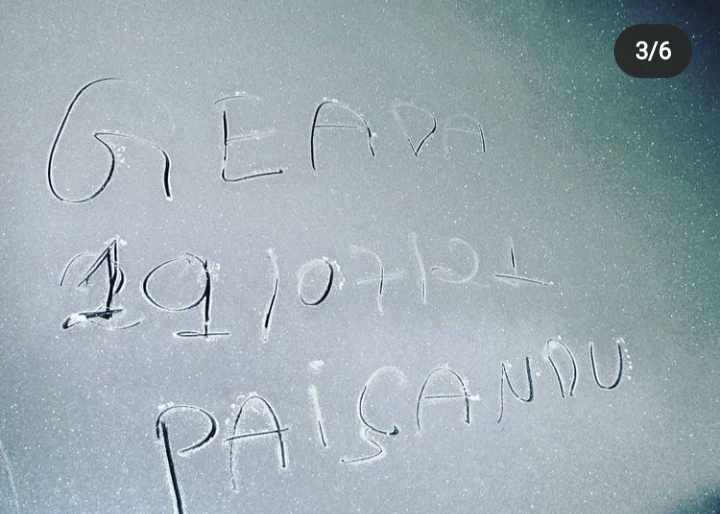 3/6
GEADA
19/07/21
PAIÇANDU